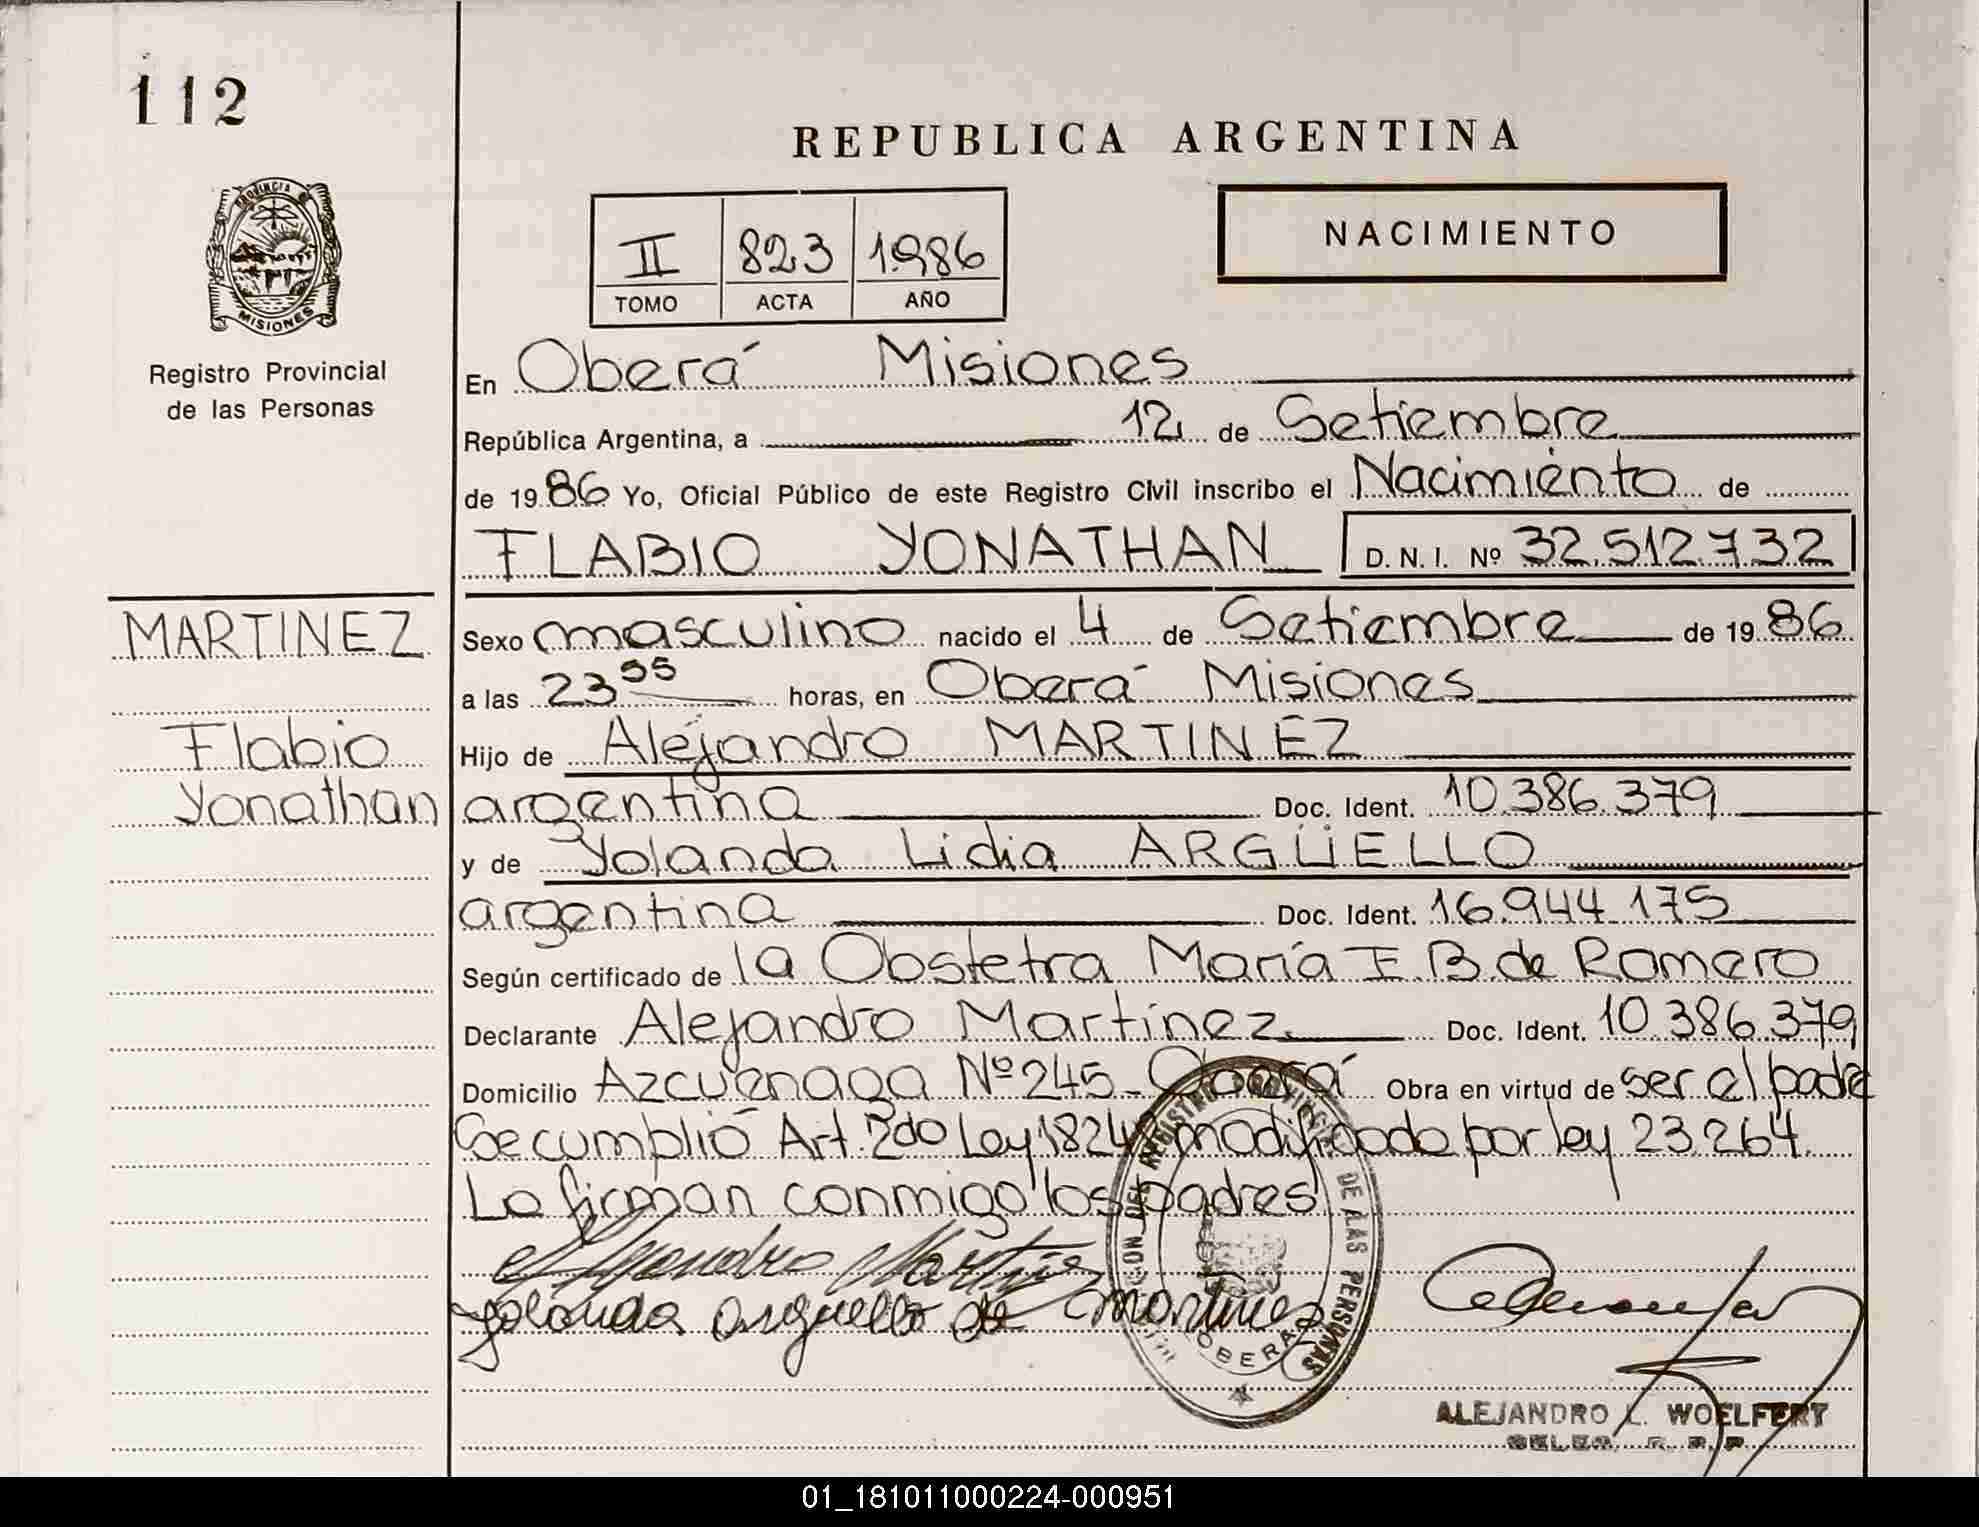 112
REPUBLICA ARGENTINA
PROVINCIA DE
MISIONES
Registro Provincial
de las Personas
II 823 1986
TOMO ACTA AÑO
NACIMIENTO
En Oberá Misiones
República Argentina, a 12 de Setiembre
de 1986 Yo, Oficial Público de este Registro Civil inscribo el Nacimiento de
FLABIO YONATHAN D.N.I. Nº 32.512.732
MARTINEZ
Flabio
Yonathan
Sexo masculino nacido el 4 de Setiembre de 1986
a las 23 55 horas, en Oberá Misiones
Hijo de Alejandro MARTINEZ
argentina Doc. Ident. 10.386.379
y de Yolanda Lidia ARGÜELLO
argentina Doc. Ident. 16.944.175
Según certificado de la Obstetra María E. B. de Romero
Declarante Alejandro Martínez Doc. Ident. 10.386.379
Domicilio Azcuénaga Nº 245 - Oberá Obra en virtud de ser el padre
Se cumplió Art. 2do Ley 18248 modificado por ley 23.264.
Lo firman conmigo los padres
Alejandro Martinez
Yolanda Arguello de Martinez
REGISTRO PROVINCIAL DE LAS PERSONAS
OBERA
ALEJANDRO L. WOELFERT
01_181011000224-000951